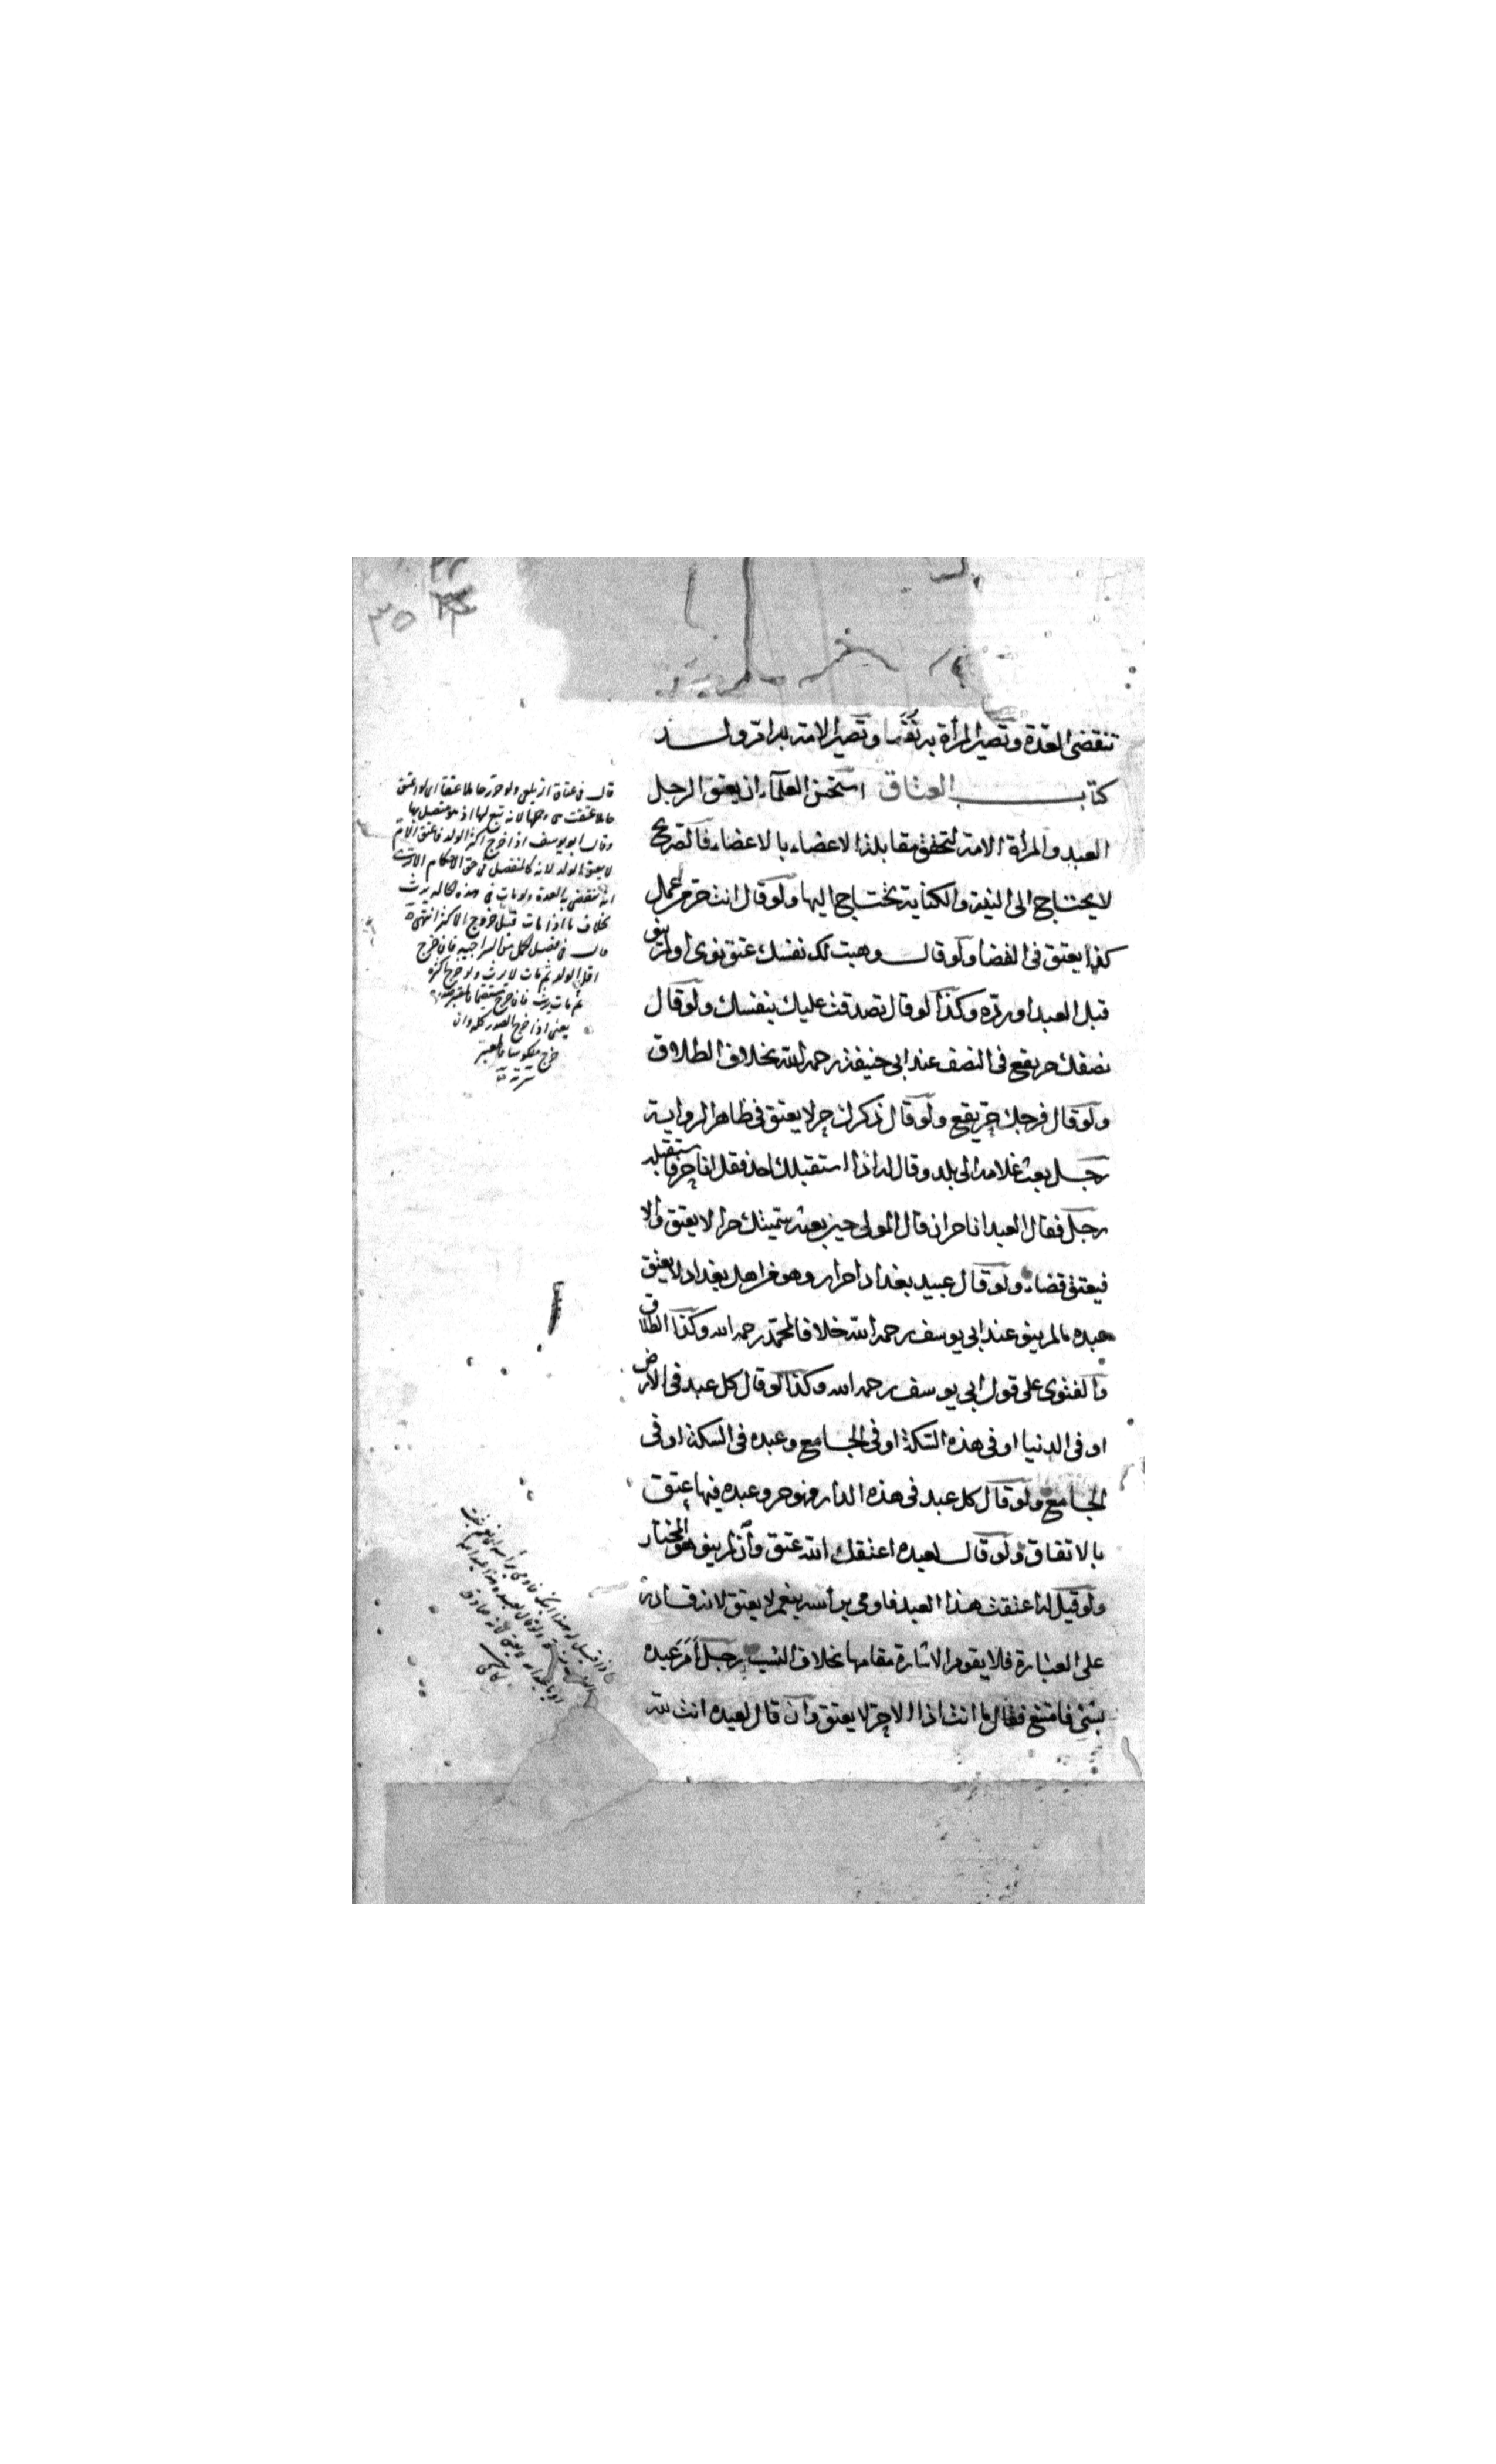 ٣٥
تنقضى العدة وتصير المرأة به نفساء وتصير الامة به ام ولد
كتاب العتاق استحسن العلماء ان يعتق الرجل
العبد والمرأة الامة لتحقق مقابلة الاعضاء بالاعضاء فالصريح
لا يحتاج الى النية والكناية تحتاج اليها ولو قال انت حر من عمل
كذا يعتق فى القضا ولو قال وهبت لك نفسك عتق نوى او لم ينو
قبل العبد او رده وكذا لو قال تصدقت عليك بنفسك ولو قال
نصفك حر يقع فى النصف عند ابى حنيفة رحمه الله بخلاف الطلاق
ولو قال فرجك حر يقع ولو قال ذكرك حر لا يعتق فى ظاهر الرواية
رجل بعث غلامه الى بلد وقال له اذا استقبلك احد فقل انا حر فاستقبله
رجل فقال العبد انا حر ان قال المولى حين بعثه سميتك حرا لا يعتق والا
فيعتق قضاء ولو قال عبيد بغداد احرار وهو من اهل بغداد لا يعتق
عبده مالم ينو عند ابى يوسف رحمه الله خلافا لمحمد رحمه الله وكذا الطلاق
والفتوى على قول ابى يوسف رحمه الله وكذا لو قال كل عبد فى الارض
او فى الدنيا او فى هذه السكة او فى الجامع وعبده فى السكة او فى
الجامع ولو قال كل عبد فى هذه الدار فهو حر وعبده فيها عتق
بالاتفاق ولو قال لعبده اعتقك الله عتق وان لم ينو هو المختار
ولو قيل له اعتقت هذا العبد فاومى برأسه بنعم لا يعتق لانه قادر
على العبارة فلا يقوم الاشارة مقامها بخلاف النسب رجل امر عبده
بشئ فامتنع فقال ما انت اذا الا حر لا يعتق وان قال لعبده انت لله
حاملا عتقت هى وحملها لانه تبع لها اذ هو متصل بها
وقال ابو يوسف اذا خرج اكثر الولد فاعتق الام
لا يعتق الولد لانه كالمنفصل فى حق الاحكام
بخلاف ما اذا مات قبل خروج الاكثر انتهى
اقل الولد ثم مات لا يرث ولو خرج اكثره
يعنى اذا خرج الصدر كله وان
خرج منكوسا فالمعتبر
سرته